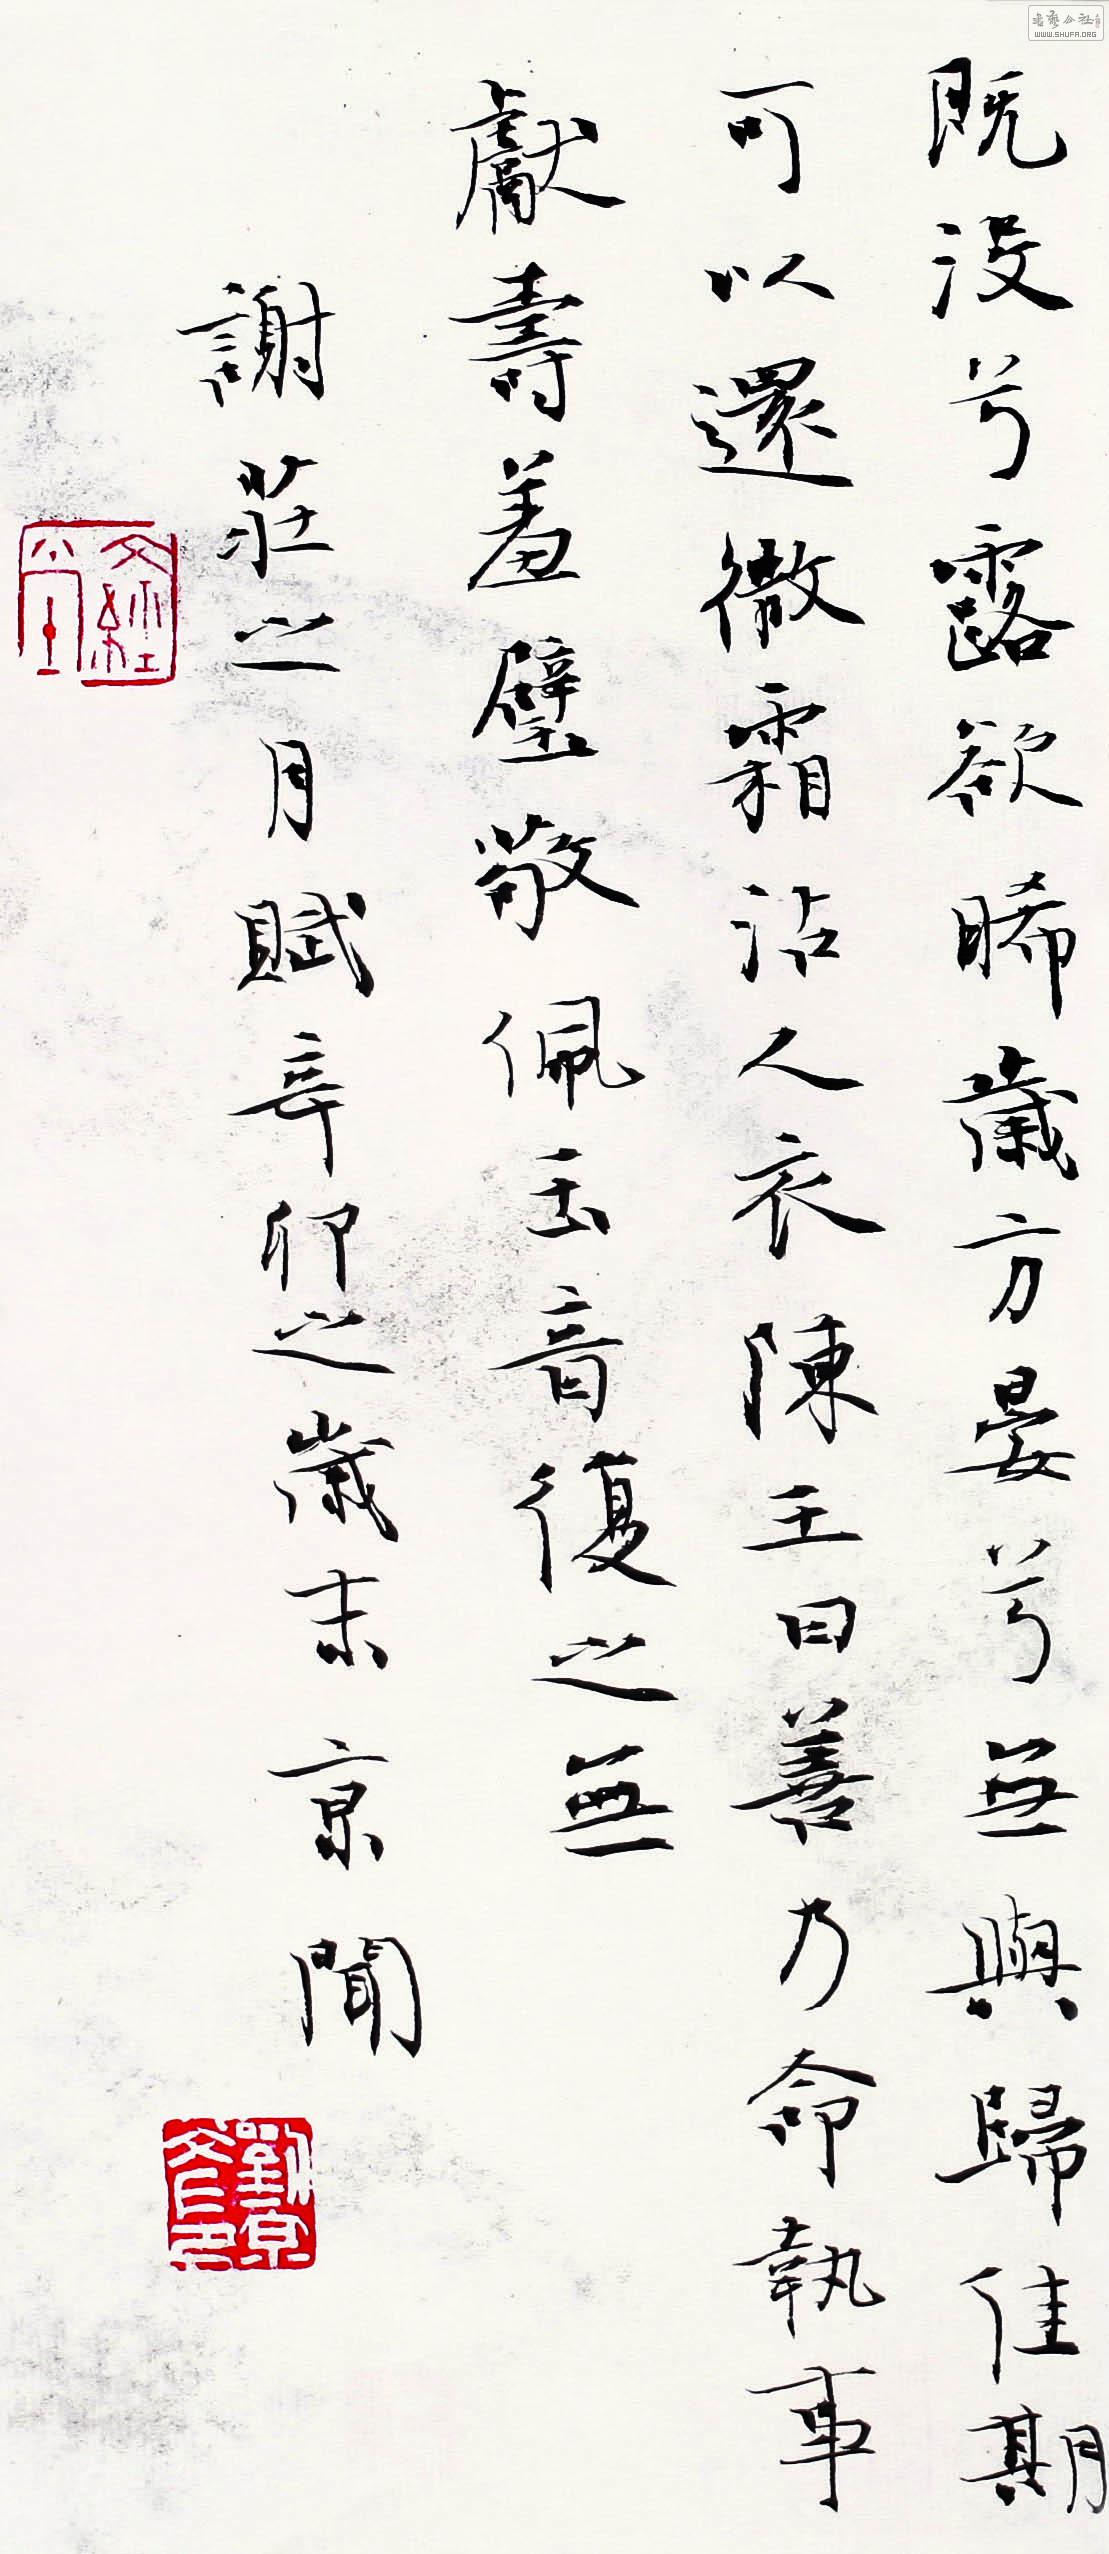 既没兮露欲晞歲方晏兮無與歸佳期
可以還微霜沾人衣陳王曰善乃命執事
獻壽羞璧敬佩玉音復之無
謝莊之月賦辛卯之歲末京聞
WWW.SHUFA.ORG